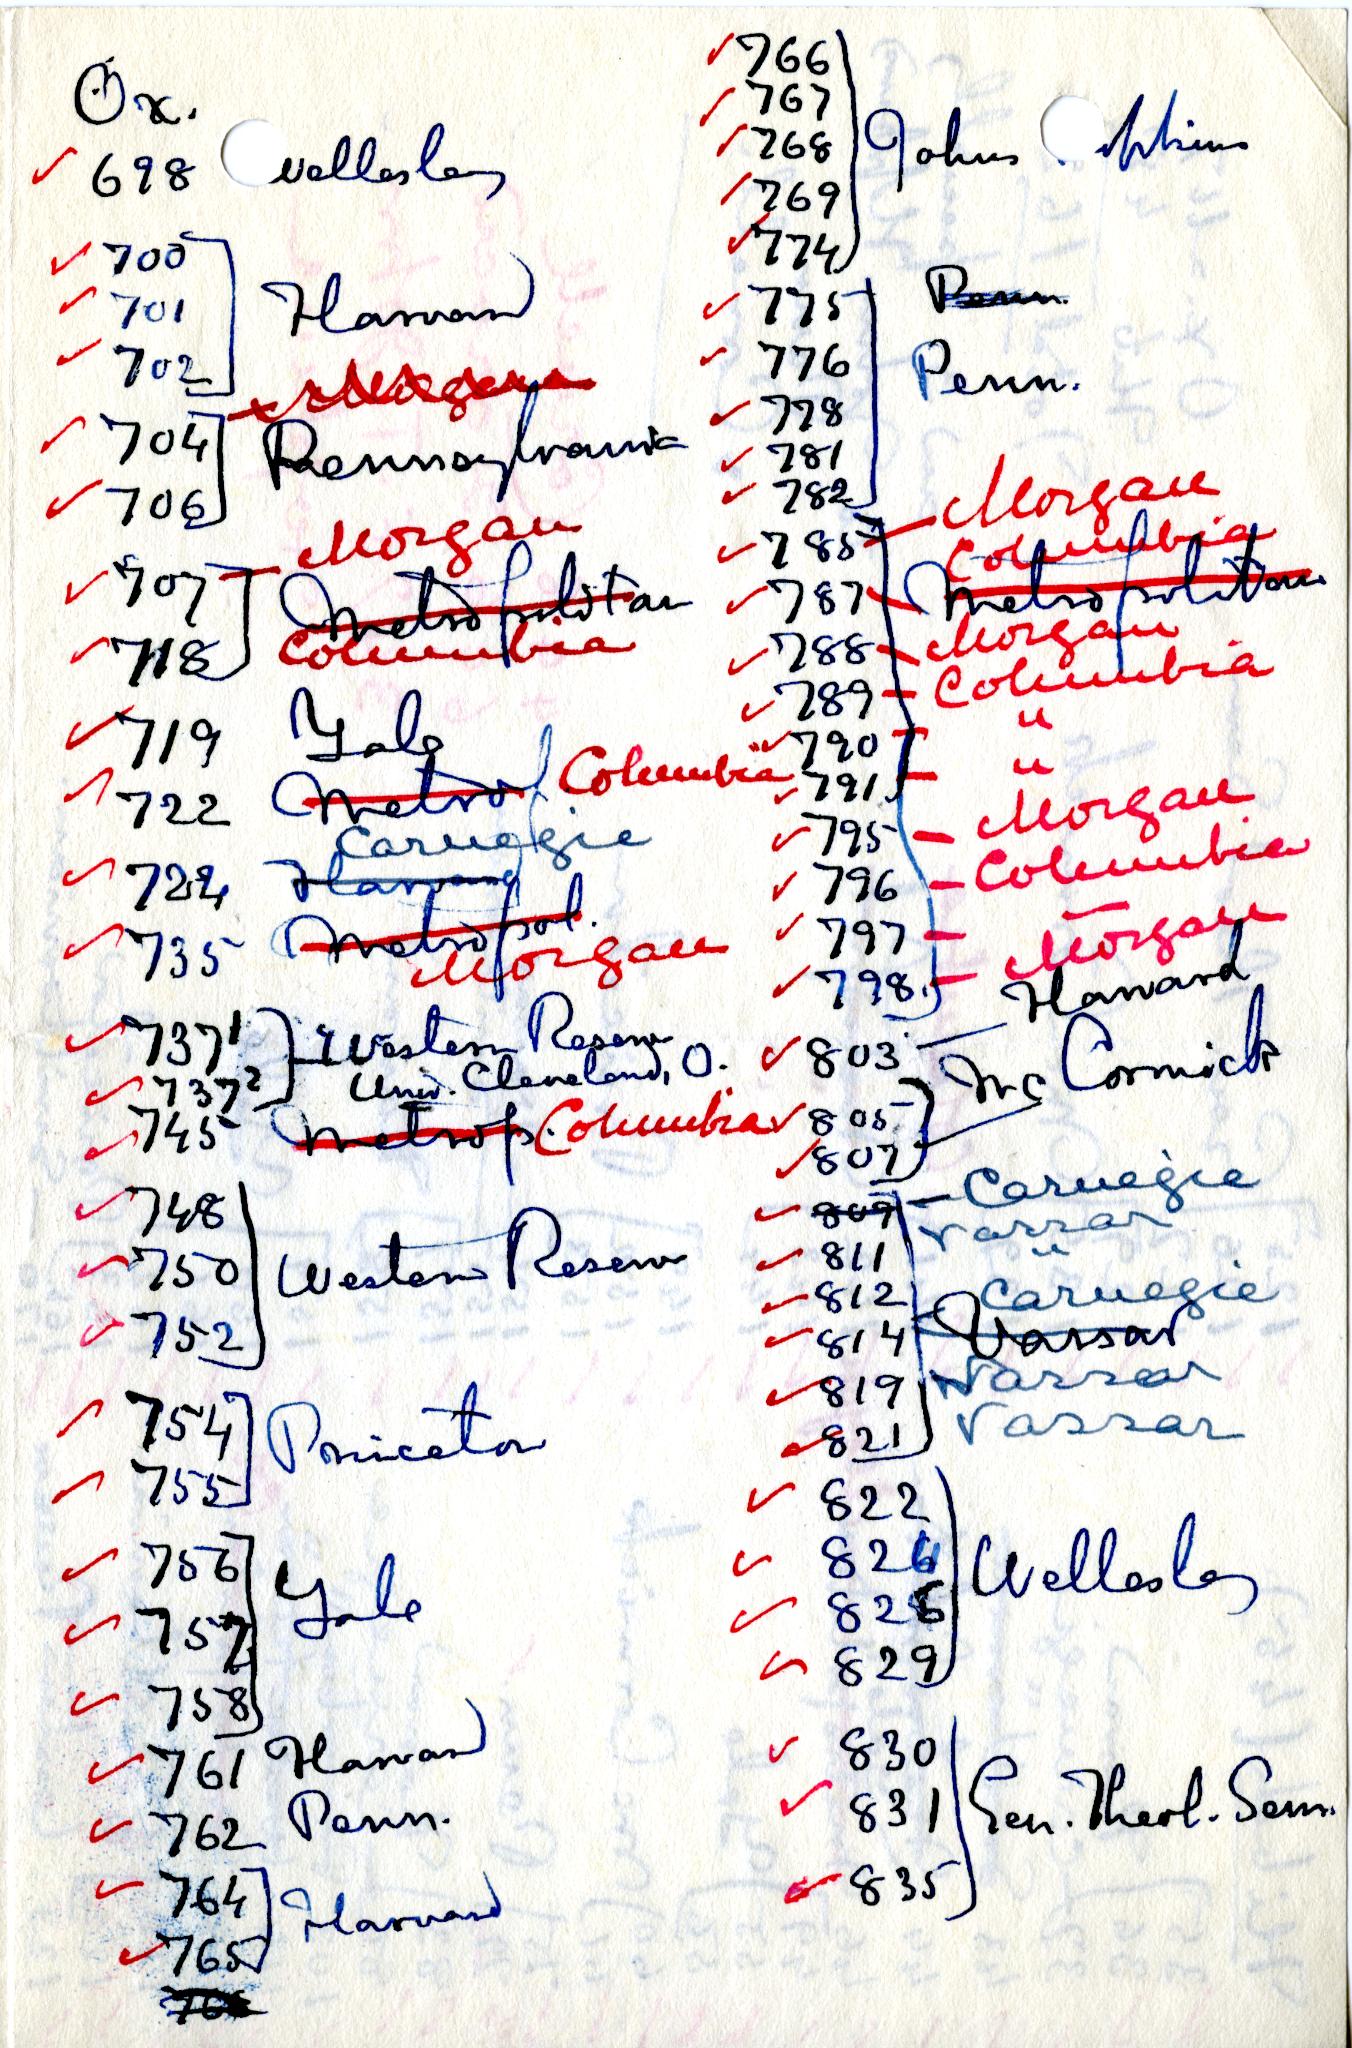 Ox.
698 Wellesley
700
701 Harvard
702
Morgan
704 Pennsylvania
706
Morgan
707 Metropolitan
718 Columbia
719 Yale
722 Metrop Columbia
Carnegie
724 Harvard
735 Metropol.
Morgan
737¹ Western Reserve
737² Univ. Cleveland, O.
745 Metrop. Columbia
748
750 Western Reserve
752
754 Princeton
755
756
757 Yale
758
761 Harvard
762 Penn.
764 Harvard
765
766
766
767
768 Johns Hopkins
769
774
775 Penn.
776 Penn.
778
781
782
785 Morgan
Columbia
787 Metropolitan
788 Morgan
789 Columbia
790 "
791 "
795 Morgan
796 Columbia
797 —
798 Morgan
803 Harvard
805 McCormick
807
809 Carnegie
Vassar
811 "
812 Carnegie
814 Vassar
819 Vassar
821 Vassar
822
826 Wellesley
828
829
830
831 Gen. Theol. Sem.
835